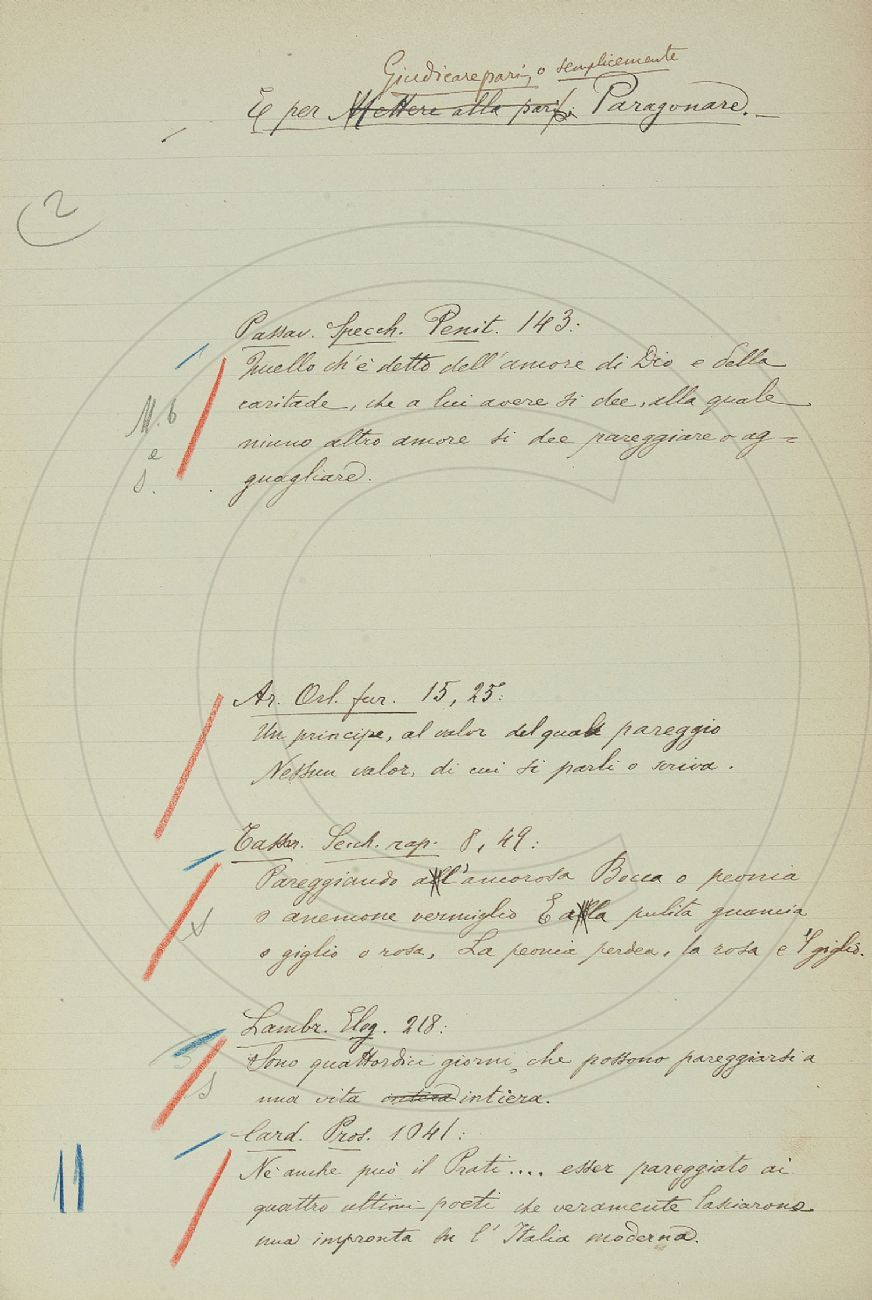 Giudicare pari, o semplicemente
E per Mettere alla pari, Paragonare.
2
Passav. Specch. Penit. 143:
Quello ch'è detto dell'amore di Dio e della
caritade, che a lui avere si dee, alla quale
niuno altro amore si dee pareggiare o ag=
guagliare.
M. b
e
S.
Ar. Orl. fur. 15, 25:
Un principe, al valor del qual pareggio
Nessun valor, di cui si parli o scriva.
Tasson. Secch. rap. 8, 49:
Pareggiando all'amorosa Bocca o peonia
o anemone vermiglio E alla pulita guancia
o giglio o rosa, La peonia perdea, la rosa e 'l giglio.
Lambr. Elog. 218:
Sono quattordici giorni, che possono pareggiarsi a
S
una vita intera intiera.
Card. Pros. 1041:
Nè anche può il Prati.... esser pareggiato ai
11
quattro ultimi poeti che veramente lasciarono
una impronta su l'Italia moderna.